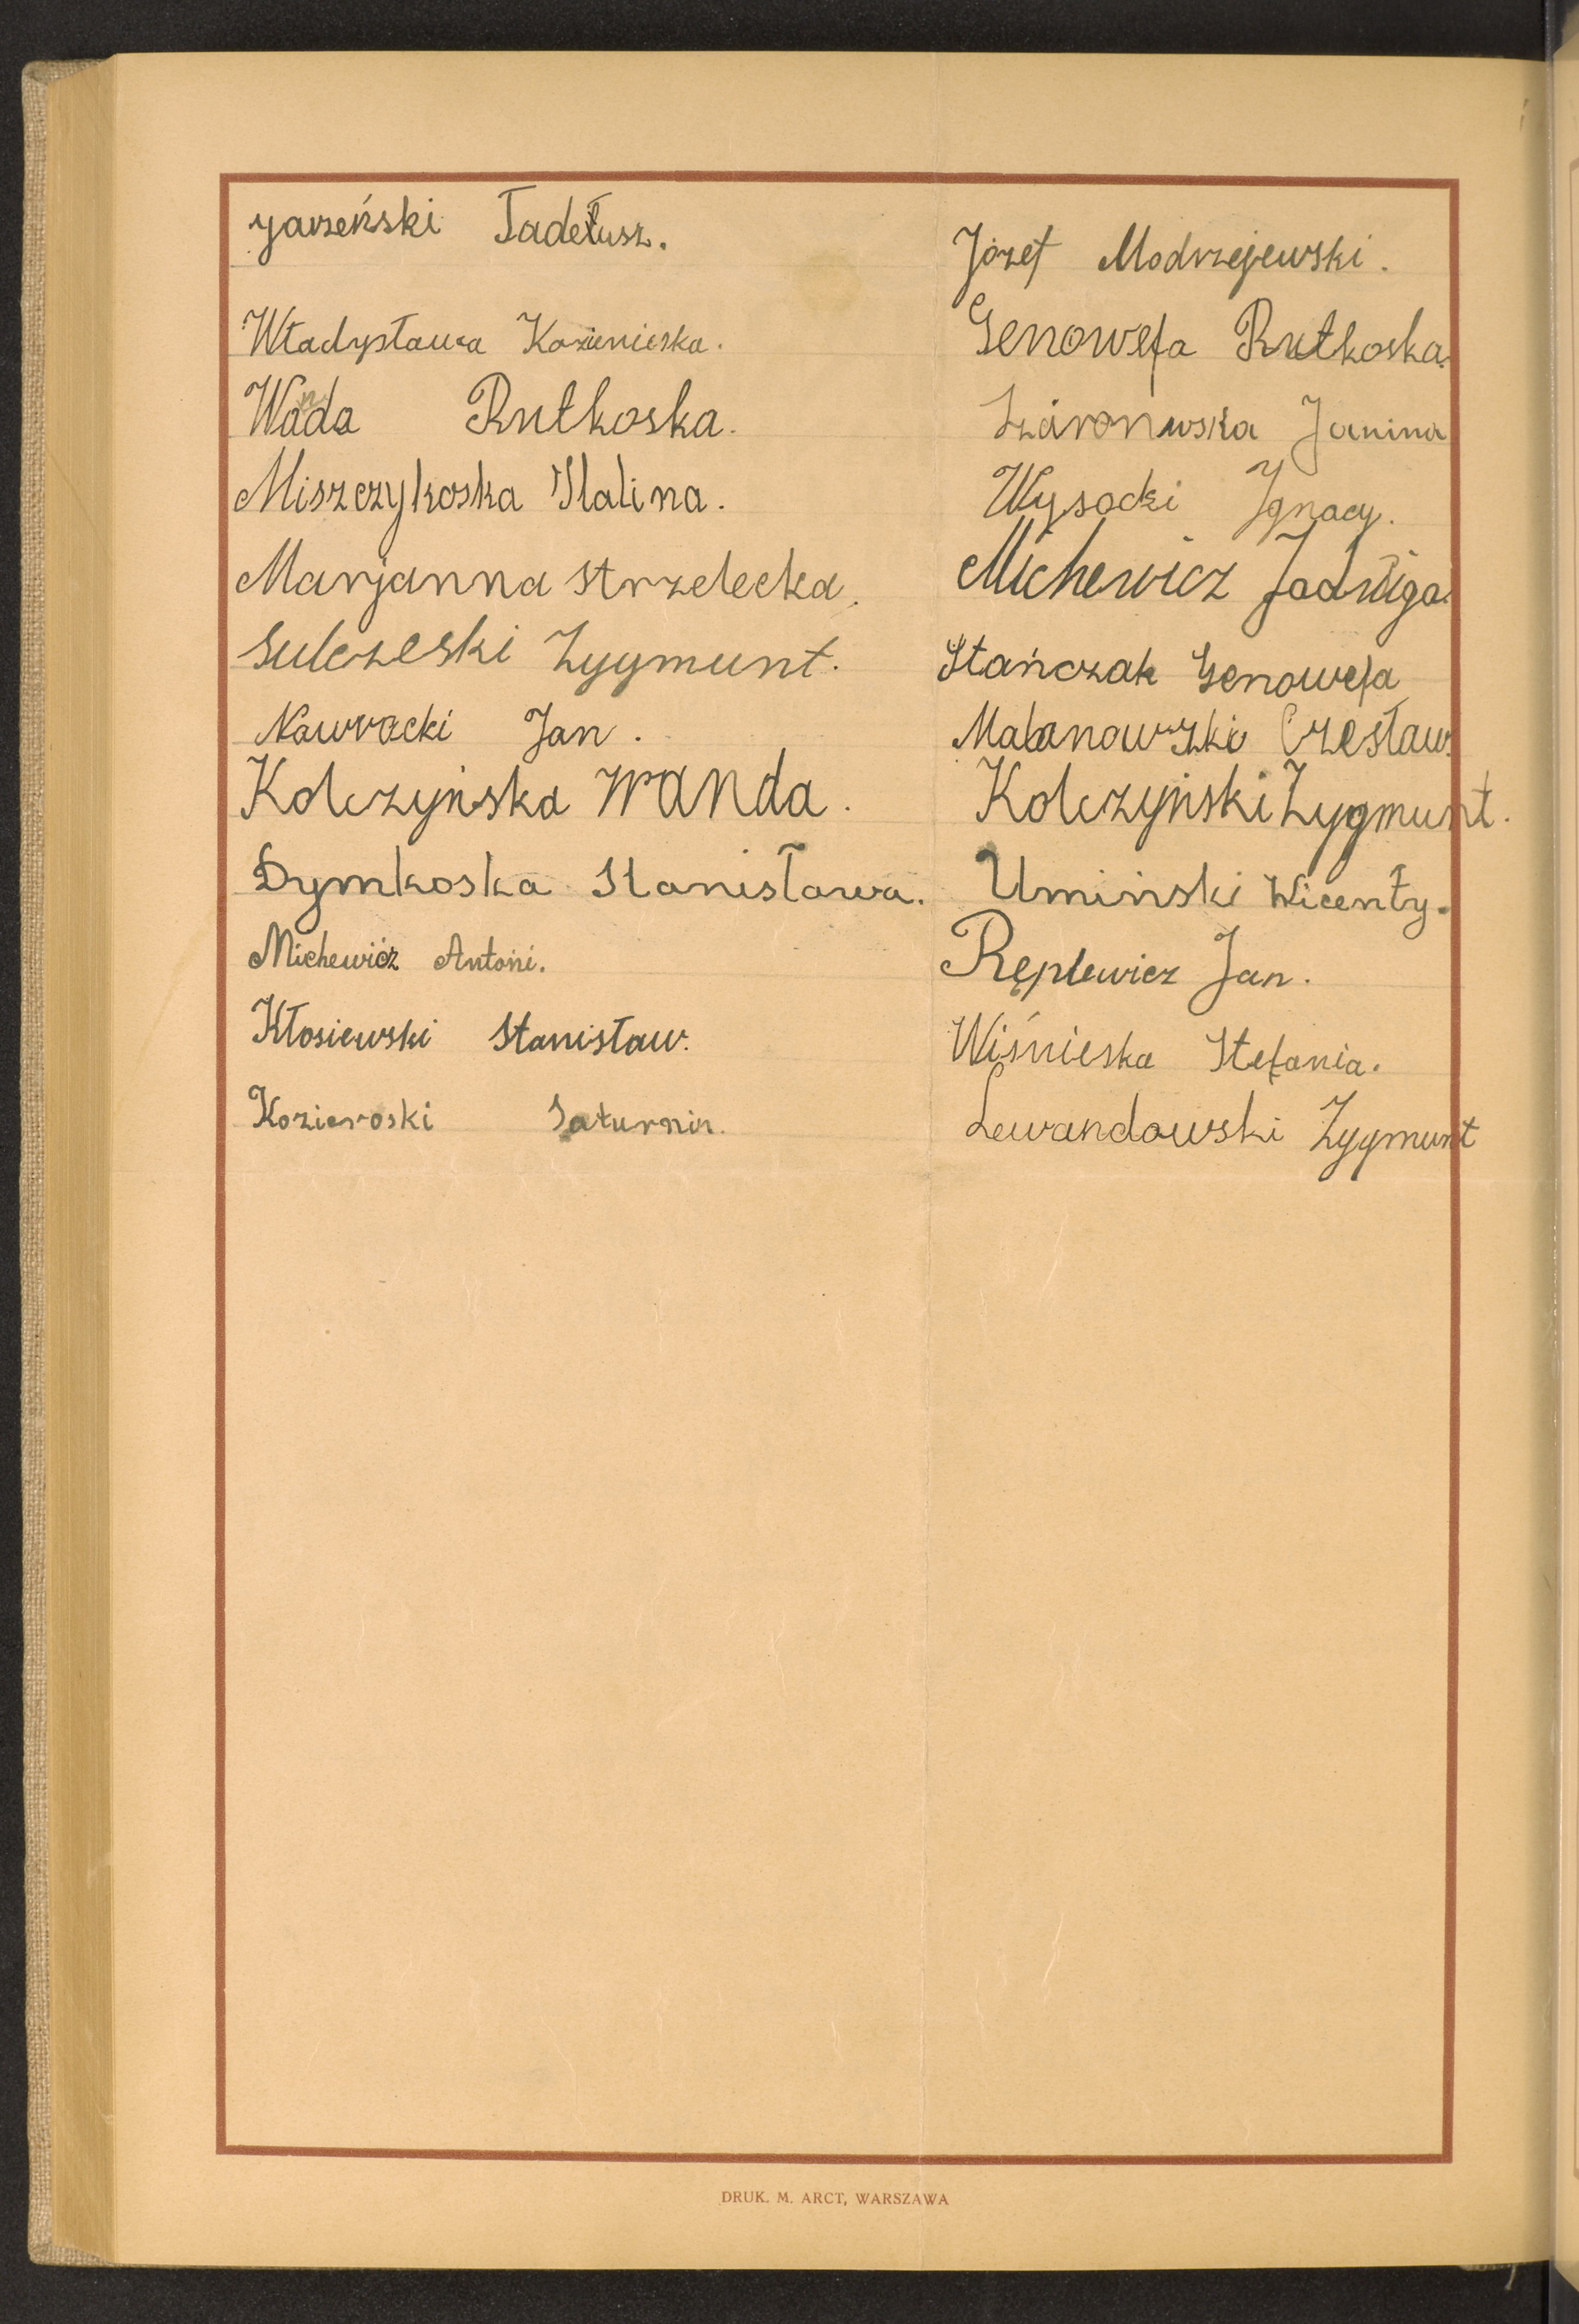 Jarzeński Tadeusz.
Władysława Kozienieska.
Wanda Rutkoska.
Miszczykoska Halina.
Marjanna Strzelecka.
Sulczeski Zygmunt.
Nawrocki Jan.
Kolczyńska Wanda.
Dymkoska Stanisława.
Michewicz Antoni.
Kłosiewski Stanisław.
Kozieroski Saturnin.
Józef Modrzejewski.
Genowefa Rutkoska.
Janina
Wysocki Ignacy.
Michewicz Jadwiga.
Stańczak Genowefa
Malanowski Czesław.
Kolczyński Zygmunt.
Umiński Wicenty.
Ręplewicz Jan.
Wiśnieska Stefania.
Lewandowski Zygmunt
DRUK. M. ARCT, WARSZAWA